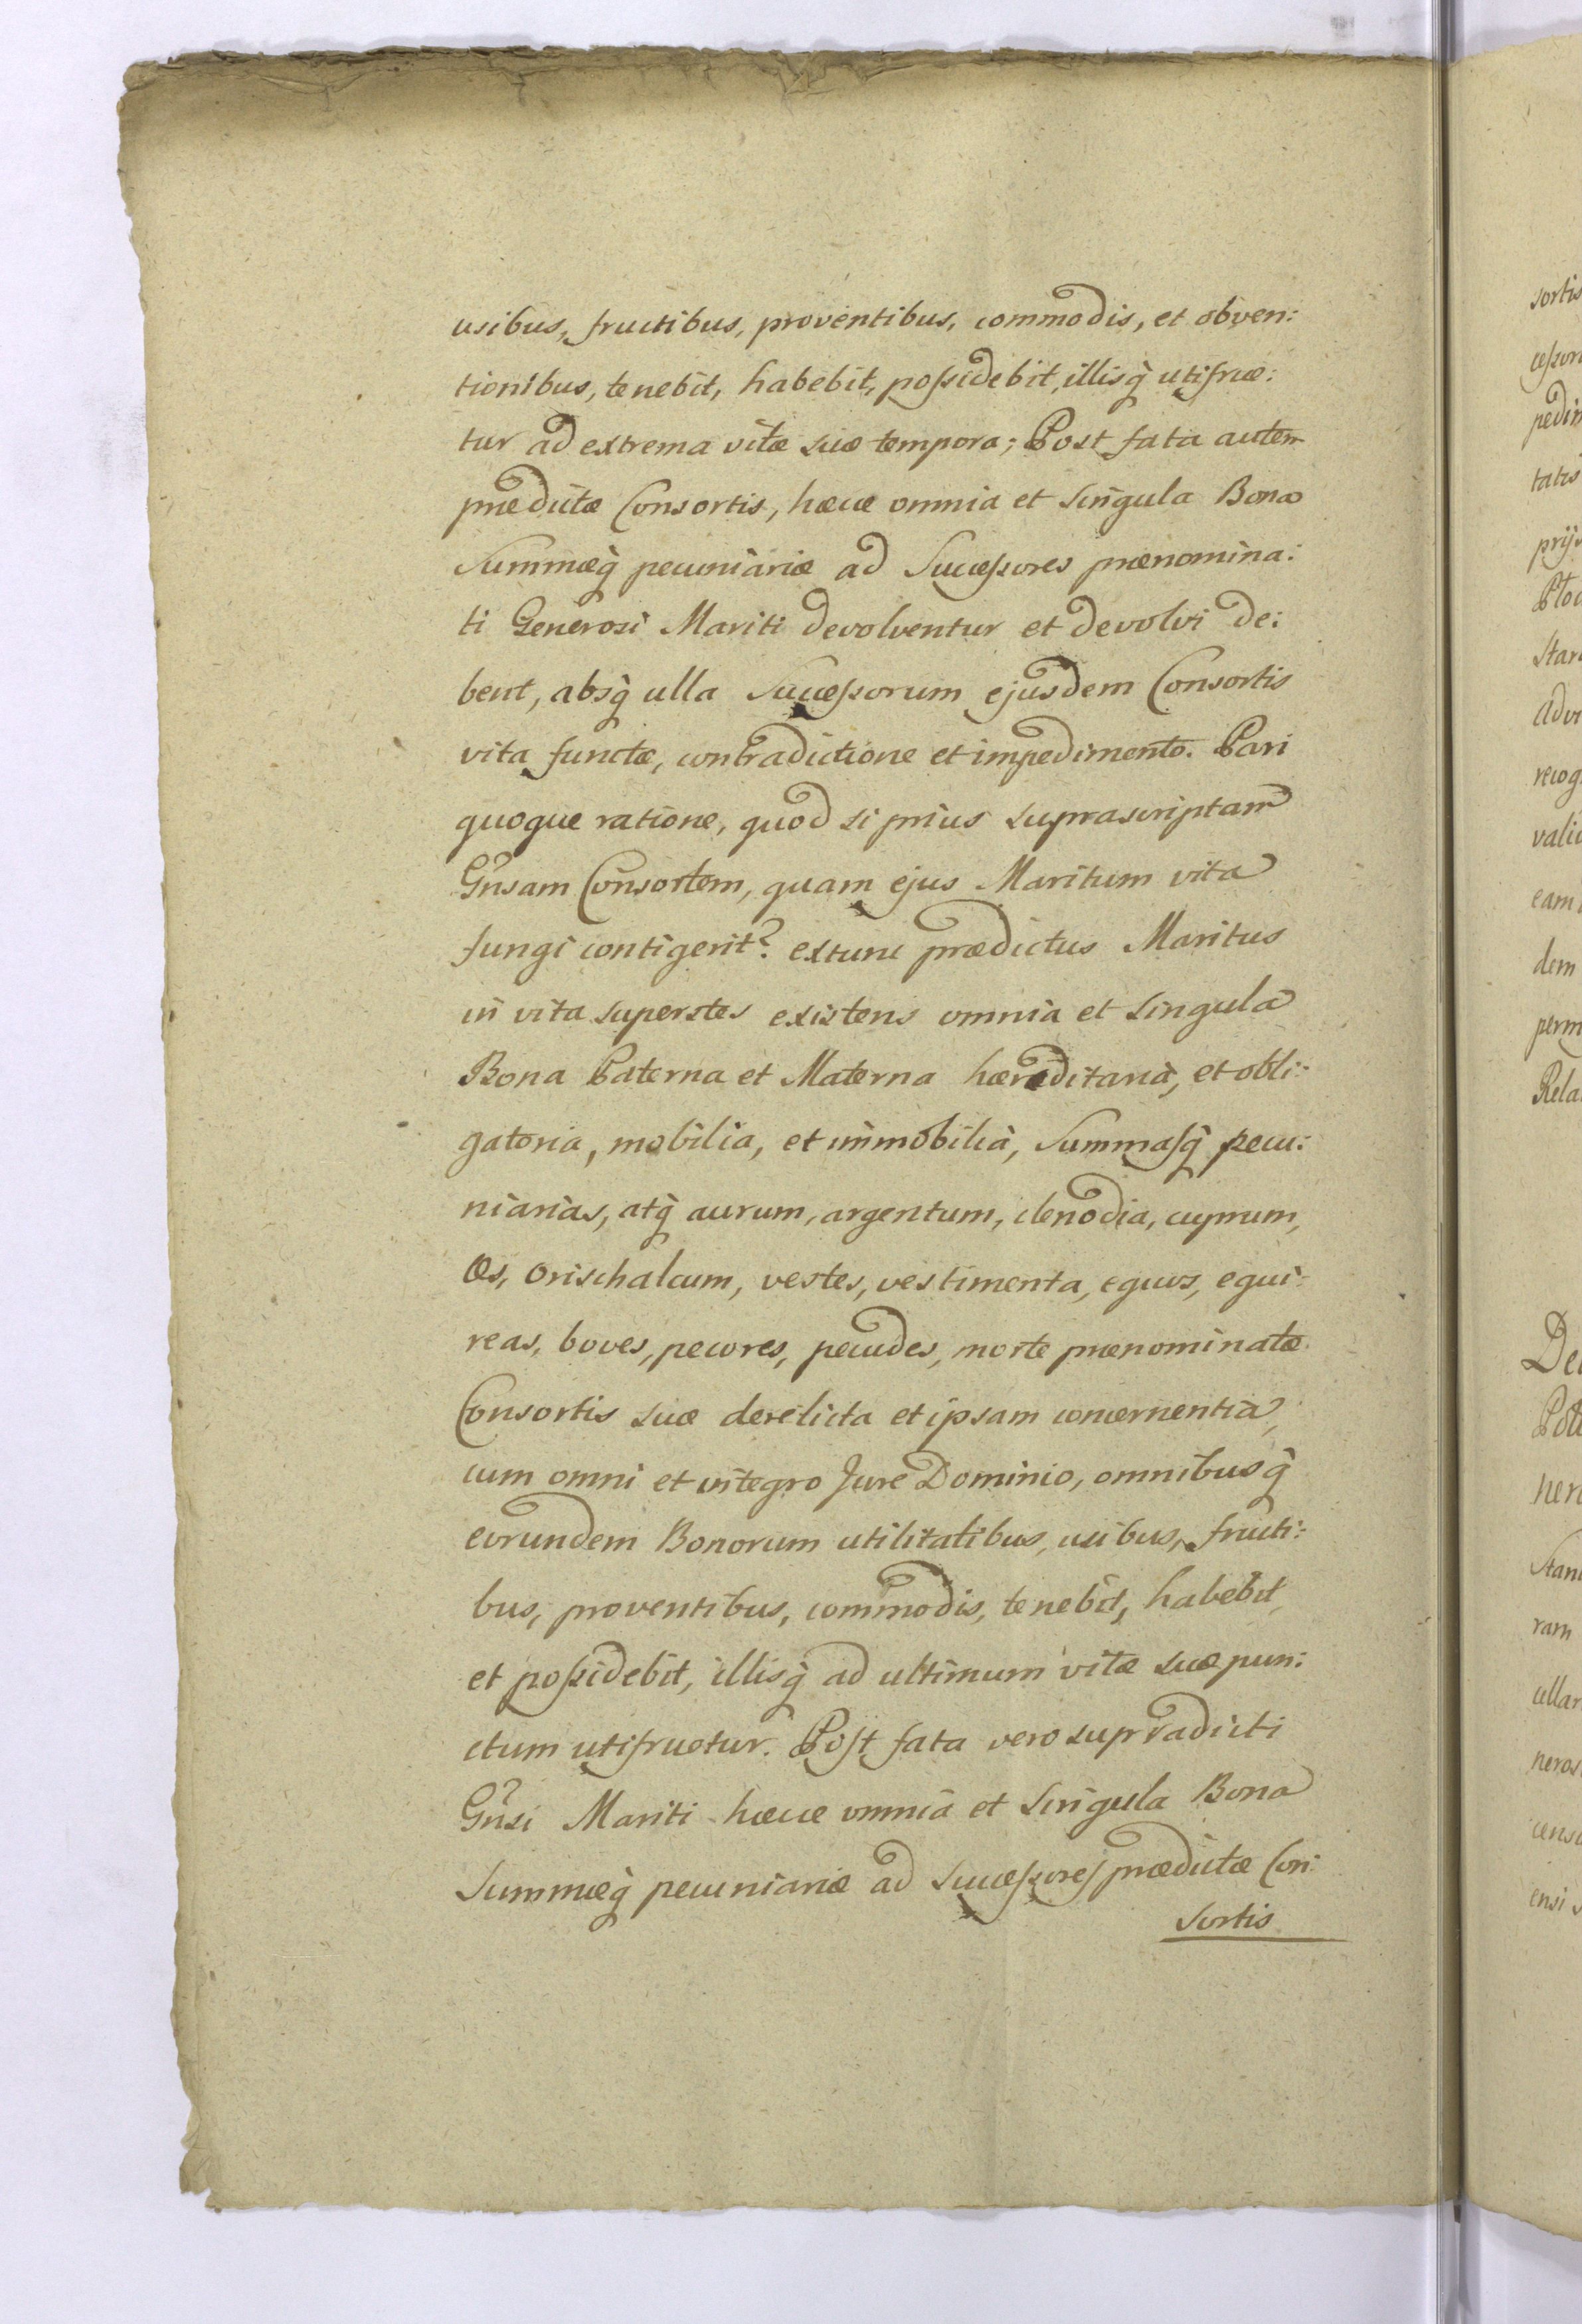 usibus, fructibus, proventibus, commodis, et obven:
tionibus, tenebit, habebit, poſsidebit, illisq̀ utifrue:
tur ad extrema vitæ suæ tempora; Post fata autem
prædictæ Consortis, hæce omnia et singula Bona
Summæq̀ pecuniariæ ad Succeſsores prænomina:
ti Generosi Mariti devolventur et devolvi de:
bent, absq̀ ulla Succeſsorum ejusdem Consortis
vita functæ, contradictione et impedimento. Pari
quoque ratione, quod si prius suprascriptam
Gñsam Consortem, quam ejus Maritum vita
fungi contigerit? extunc prædictus Maritus
in vita superstes existens omnia et singula
Bona Paterna et Materna hæreditaria, et obli:
gatoria, mobilia, et immobilia, Summaſq̀ pecu:
niarias, atq̀ aurum, argentum, clenodia, cuprum,
Æs, Orischalcum, vestes, vestimenta, equos, equi:
reas, boves, pecores, pecudes, morte prænominatæ
Consortis suæ derelicta et ipsam concernentia,
cum omni et integro Jure Dominio, omnibusq̀
eorundem Bonorum utilitatibus, usibus, fructi:
bus, proventibus, commodis, tenebit, habebit,
et poſsidebit, illisq̀ ad ultimum vitæ suæ pun:
ctum utifruetur. Poſt fata vero supradicti
Gñsi Mariti hæce omnia et singula Bona
Summæq̀ pecuniariæ ad Succeſsoreſ prædictæ Con:
sortis
sortis
pedim
tatis
recog
dem
perm
Rela